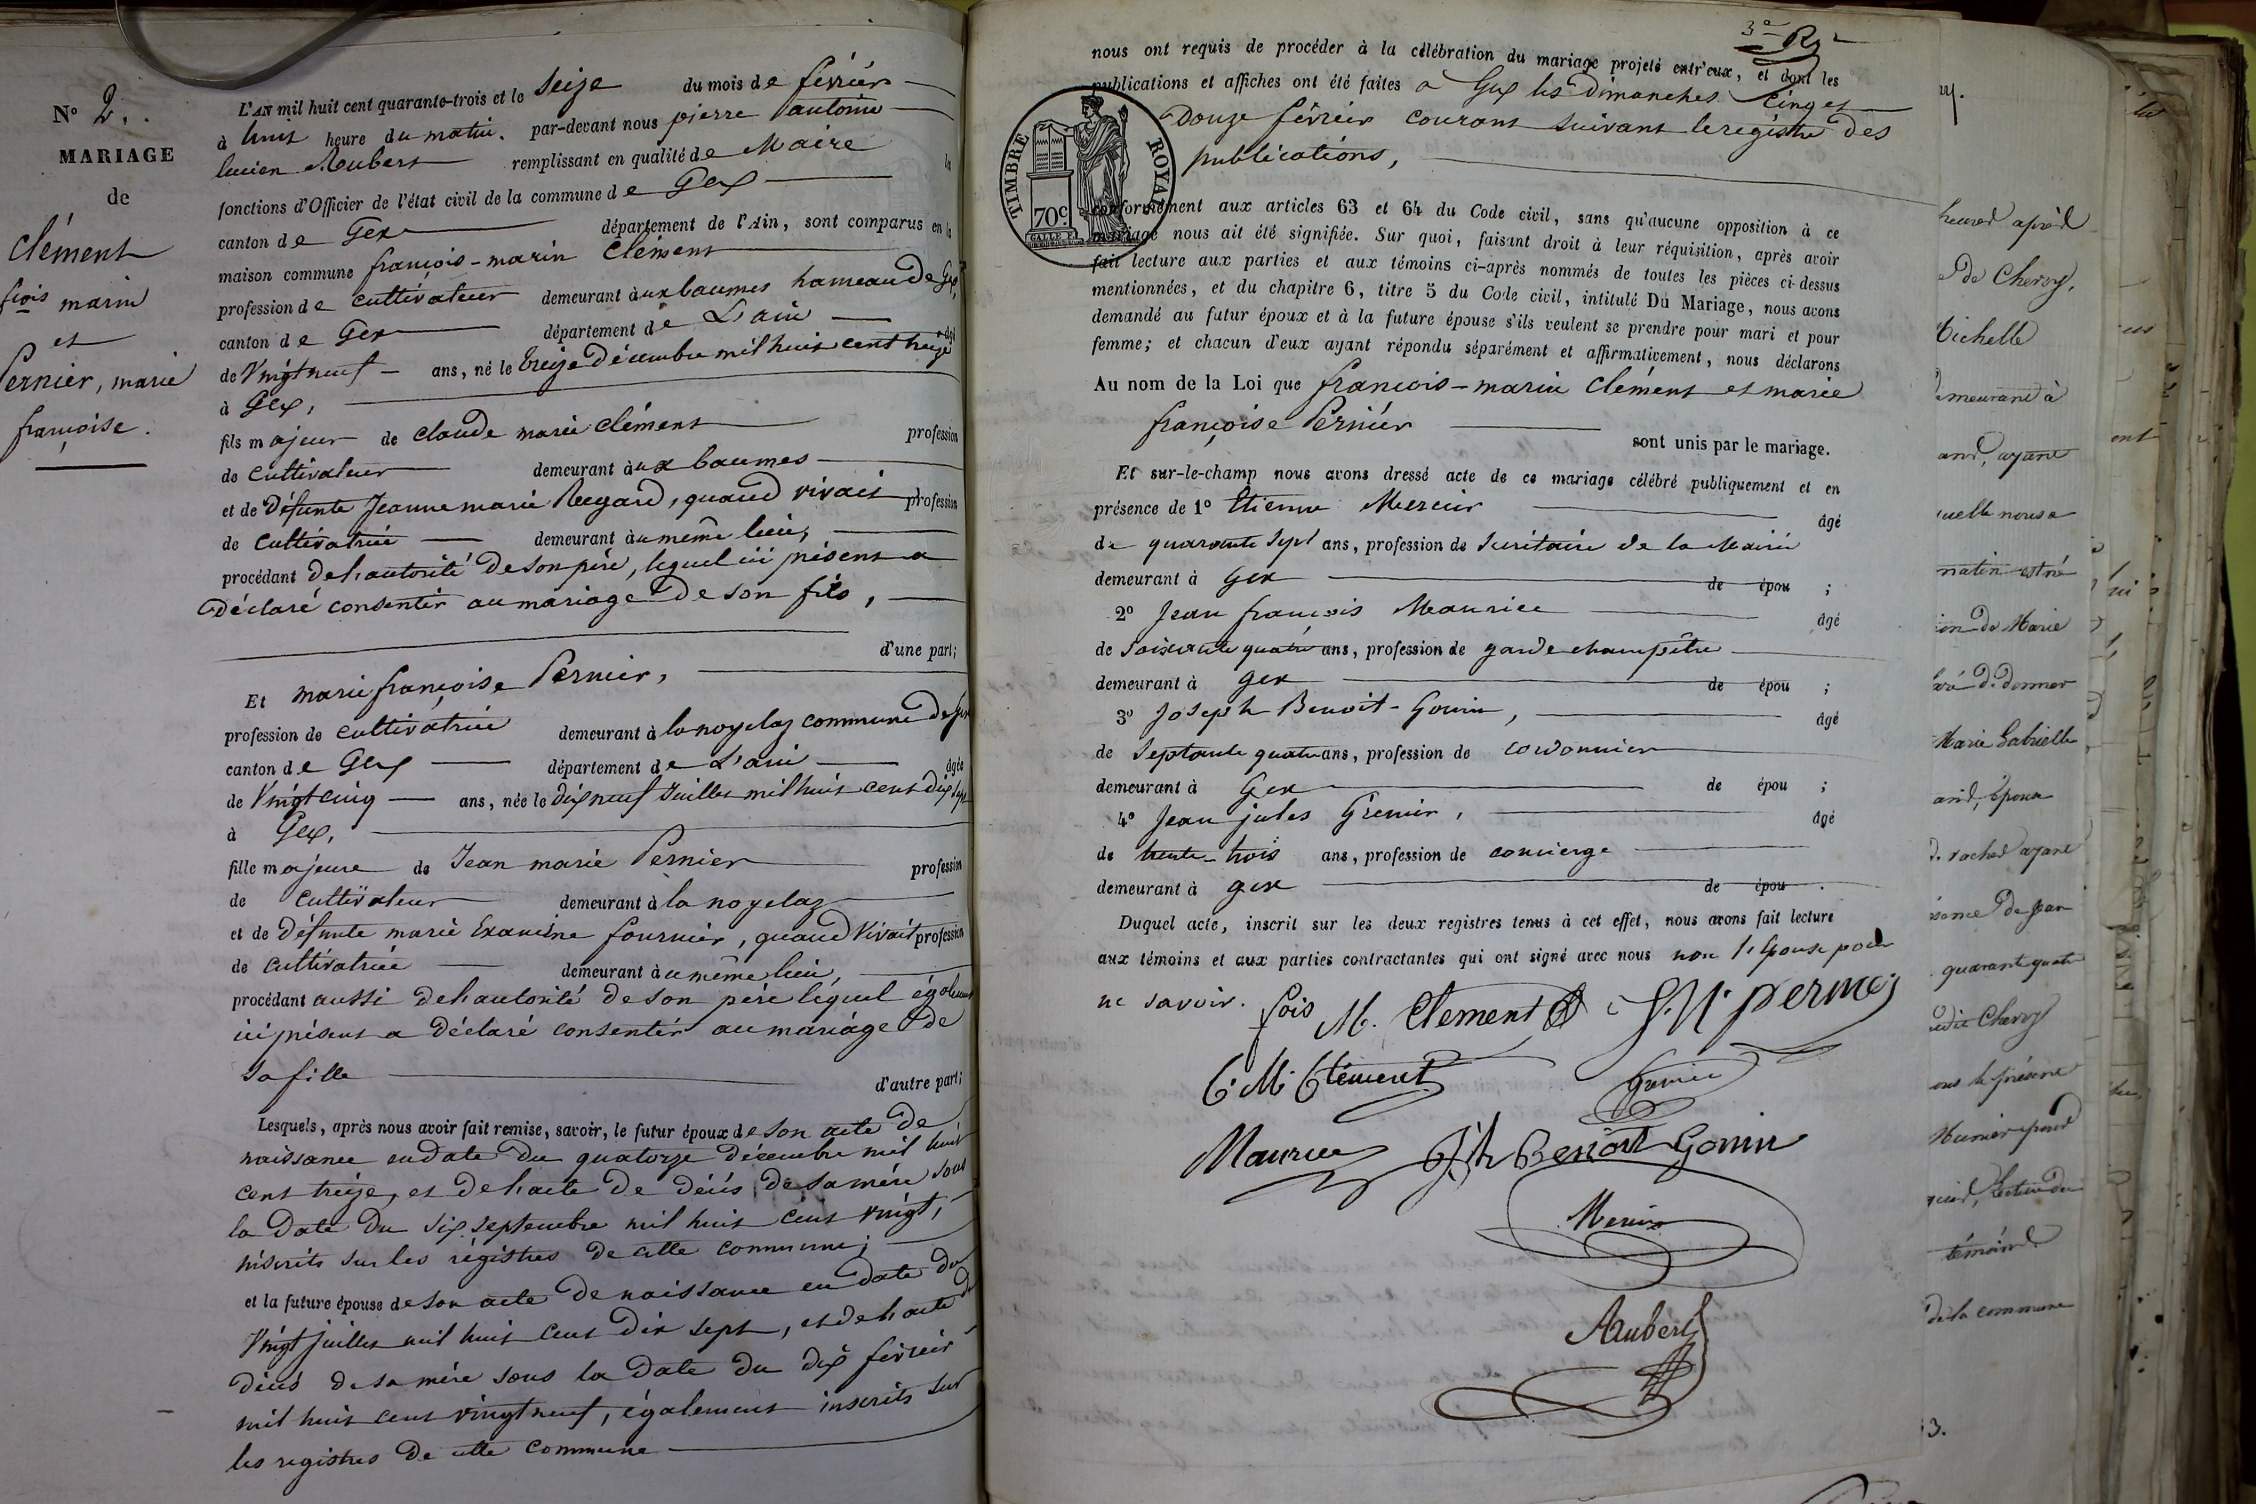 N° 2.
MARIAGE
de
Clément
fçois marin
et
Pernier, marie
françoise.
L'AN mil huit cent quarante-trois et le Seize du mois de février
à huit heure du matin. par-devant nous pierre antoine
lucien Aubert remplissant en qualité de Maire
fonctions d'Officier de l'état civil de la commune de Gex
canton de Gex département de l'Ain, sont comparus en la
maison commune françois-marin Clément
profession de cultivateur demeurant aux baumes hameau de Gex,
canton de Gex département de L'ain âgé
de Vingt neuf ans, né le treize Décembre mil huit cent treize
à Gex,
fils majeur de claude marie clément profession
de cultivateur demeurant aux baumes
et de Défunte Jeanne marie Regard, quand vivait profession
de cultivatrice demeurant au même lieu,
procédant de l'autorité de son père, lequel ici présent a
Déclaré consentir au mariage de son fils,
d'une part;
Et marie françoise Pernier,
profession de cultivatrice demeurant à la noyelaz commune de Gex
canton de Gex département de L'ain âgée
de Vingt cinq ans, née le dix neuf Juillet mil huit cent dix sept
à Gex,
fille majeure de Jean marie Pernier profession
de cultivateur demeurant à la noyelaz
et de défunte marie Exavine fournier, quand Vivait profession
de cultivatrice demeurant au même lieu,
procédant aussi de l'autorité de son père lequel également
ici présent a déclaré consentir au mariage de
sa fille d'autre part;
Lesquels, après nous avoir fait remise, savoir, le futur époux de son acte de
naissance en date du quatorze décembre mil huit
cent treize, et de l'acte de décès de sa mère sous
la date du six septembre mil huit cent vingt,
inscrits sur les régistres de cette commune;
et la future épouse de son acte de naissance en date du
Vingt juillet mil huit cent dix sept, et de l'acte de
décès de sa mère sous la date du dix février
mil huit cent vingt neuf, également inscrits sur
les registres de cette commune
nous ont requis de procéder à la célébration du mariage projeté entr'eux, et dont les
publications et affiches ont été faites à Gex les Dimanches Cinq et
Douze février courant suivant le registre des
publications,
TIMBRE ROYAL
70c
conformément aux articles 63 et 64 du Code civil, sans qu'aucune opposition à ce
mariage nous ait été signifiée. Sur quoi, faisant droit à leur réquisition, après avoir
fait lecture aux parties et aux témoins ci-après nommés de toutes les pièces ci-dessus
mentionnées, et du chapitre 6, titre 5 du Code civil, intitulé Du Mariage, nous avons
demandé au futur époux et à la future épouse s'ils veulent se prendre pour mari et pour
femme; et chacun d'eux ayant répondu séparément et affirmativement, nous déclarons
Au nom de la Loi que françois-marin Clément et marie
françoise Pernier sont unis par le mariage.
Et sur-le-champ nous avons dressé acte de ce mariage célébré publiquement et en
présence de 1° Etienne Mercier âgé
de quarante sept ans, profession de secrétaire de la Mairie
demeurant à Gex de épou ;
2° Jean françois Maurice âgé
de soixante quatre ans, profession de garde champêtre
demeurant à Gex de épou ;
3° Joseph Benoit-Gonin, âgé
de Septante quatre ans, profession de cordonnier
demeurant à Gex de épou ;
4° Jean jules Grenier, âgé
de trente-trois ans, profession de concierge
demeurant à gex de épou .
Duquel acte, inscrit sur les deux registres tenus à cet effet, nous avons fait lecture
aux témoins et aux parties contractantes qui ont signé avec nous non l'épouse pour
ne savoir. fçois M. Clement
C. M. Clément
Maurice Jh Benoît Gonin
Mercier
Aubert
heures après
de Chevry,
demeurant à
ayant
matin
de Marie
de donner
Marie Gabrielle
quarante quatre
Chevry
témoins
de la commune
3.